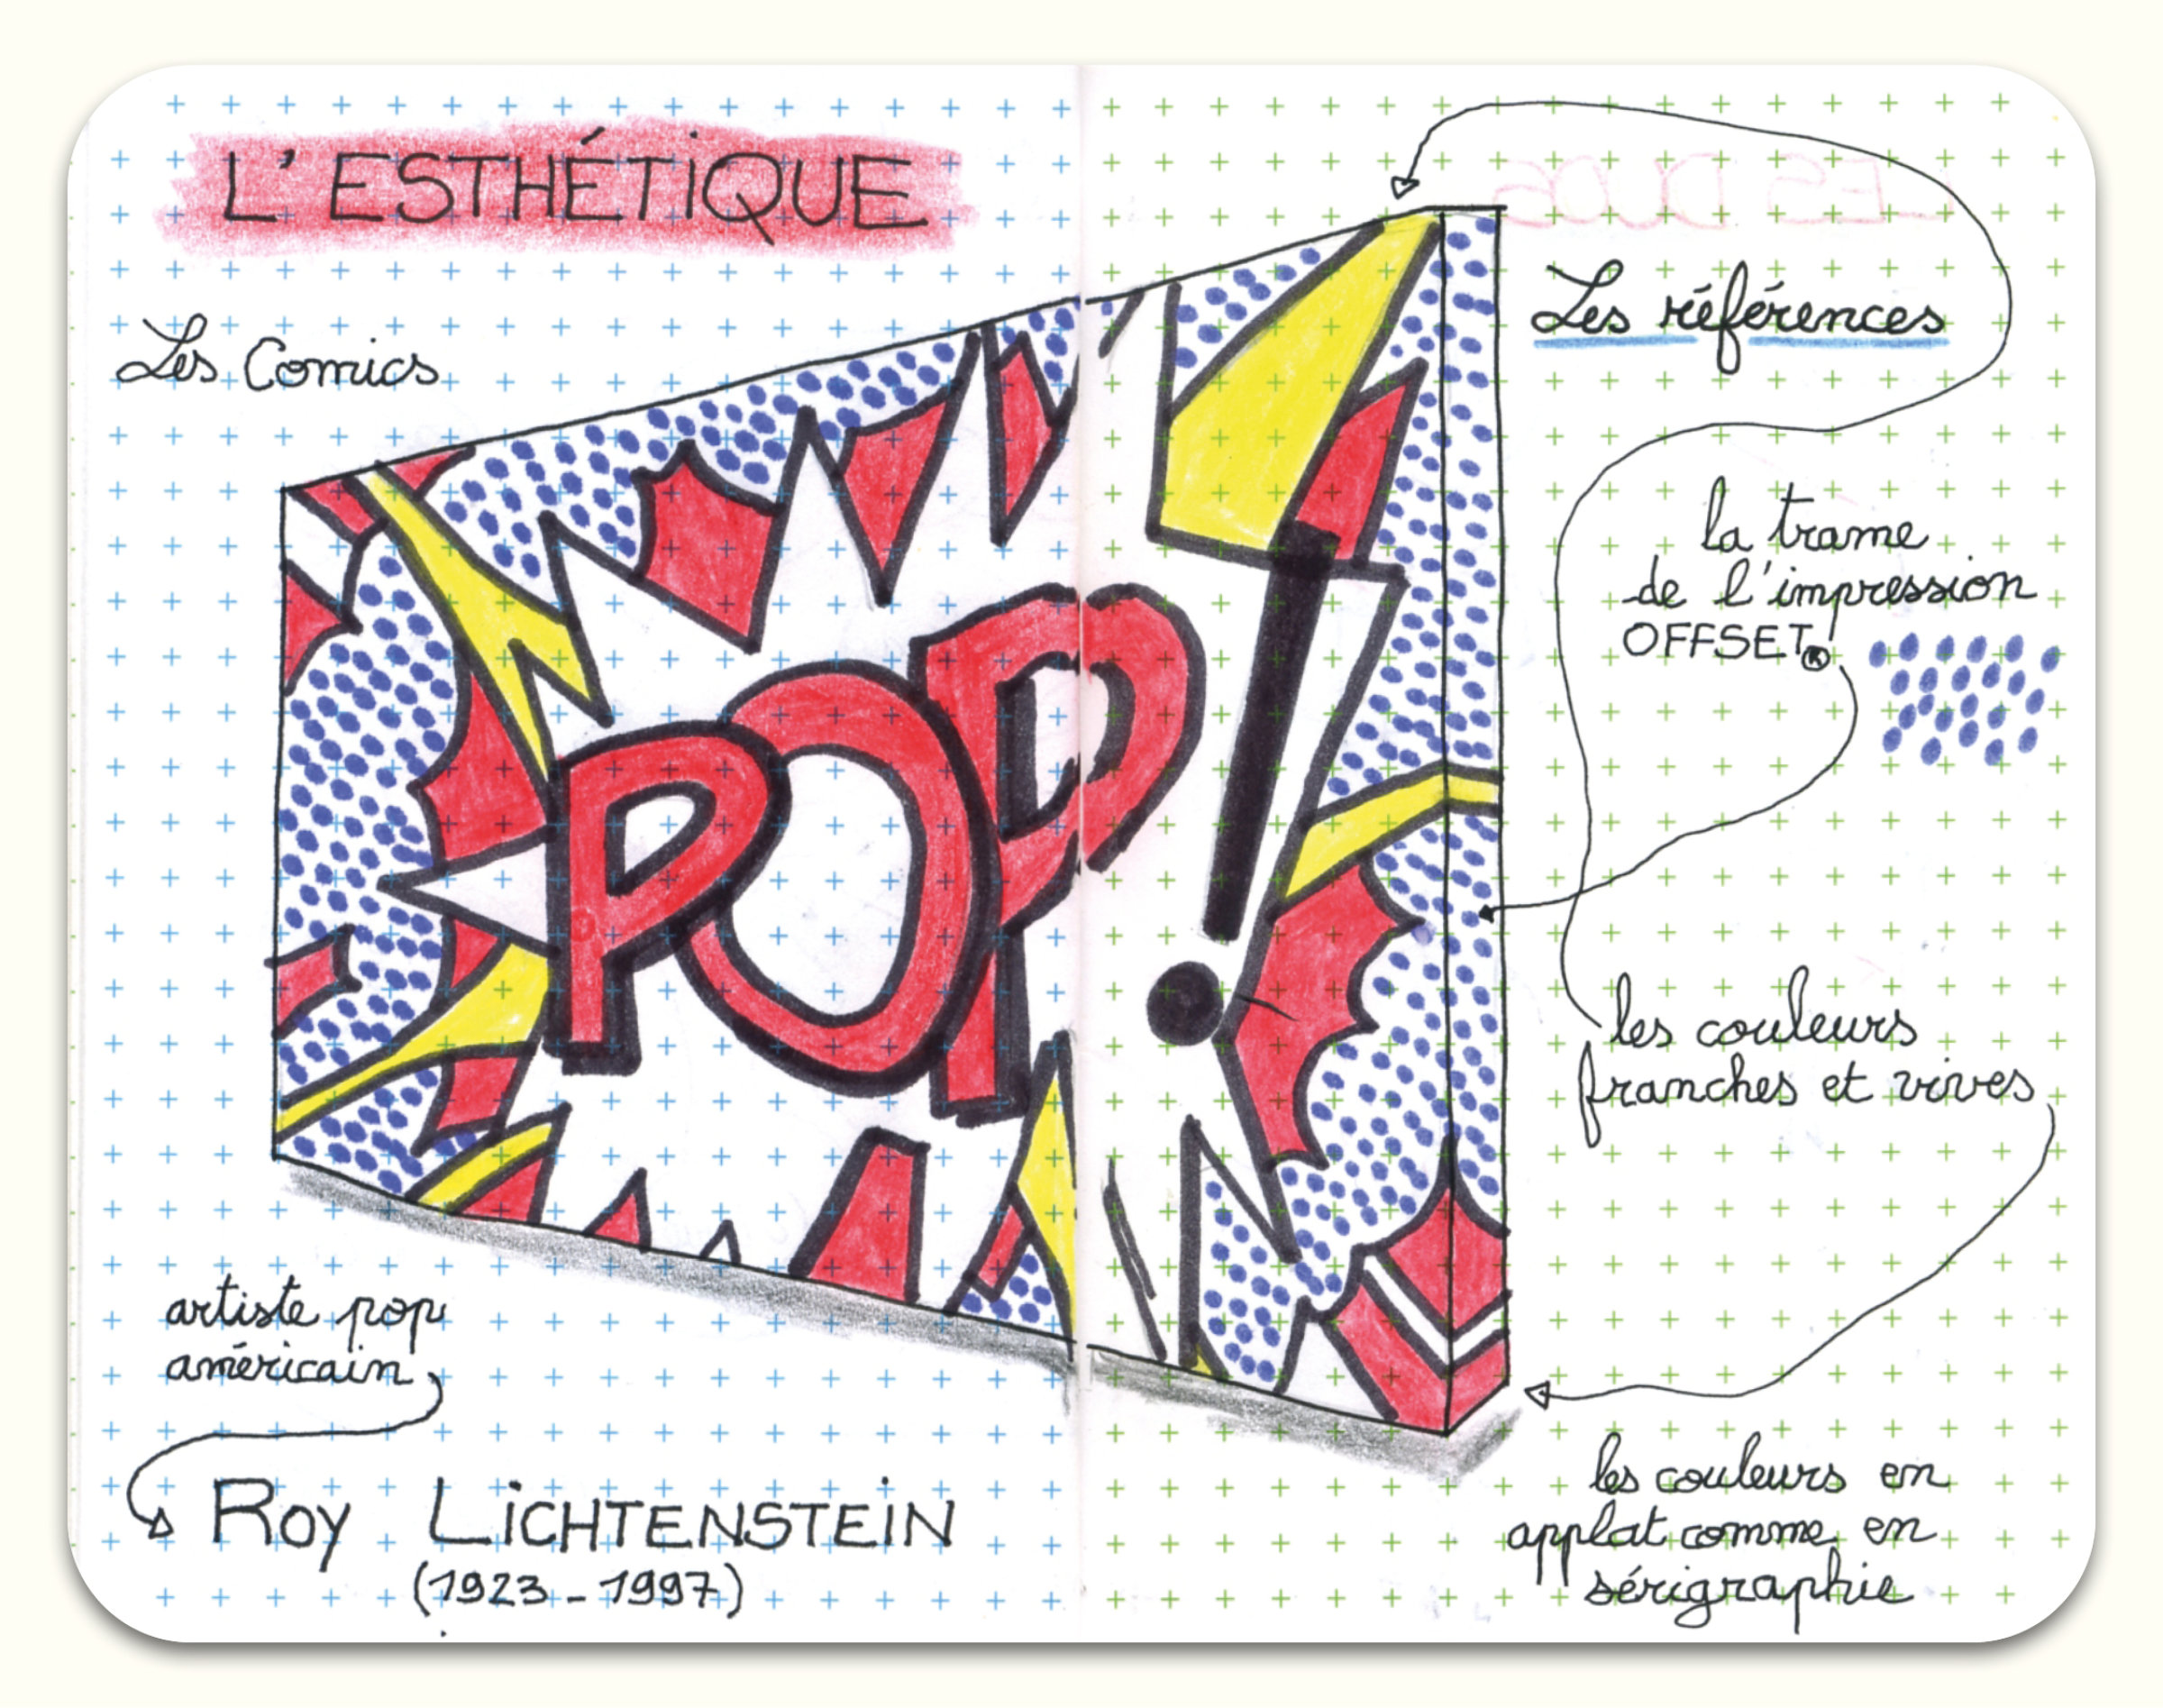 L'ESTHÉTIQUE
Les Comics
POP!
artiste pop
américain
ROY LICHTENSTEIN
(1923-1997)
LES DUOS
Les références
la trame
de l'impression
OFFSET®
les couleurs
franches et vives
les couleurs en
applat comme en
sérigraphie